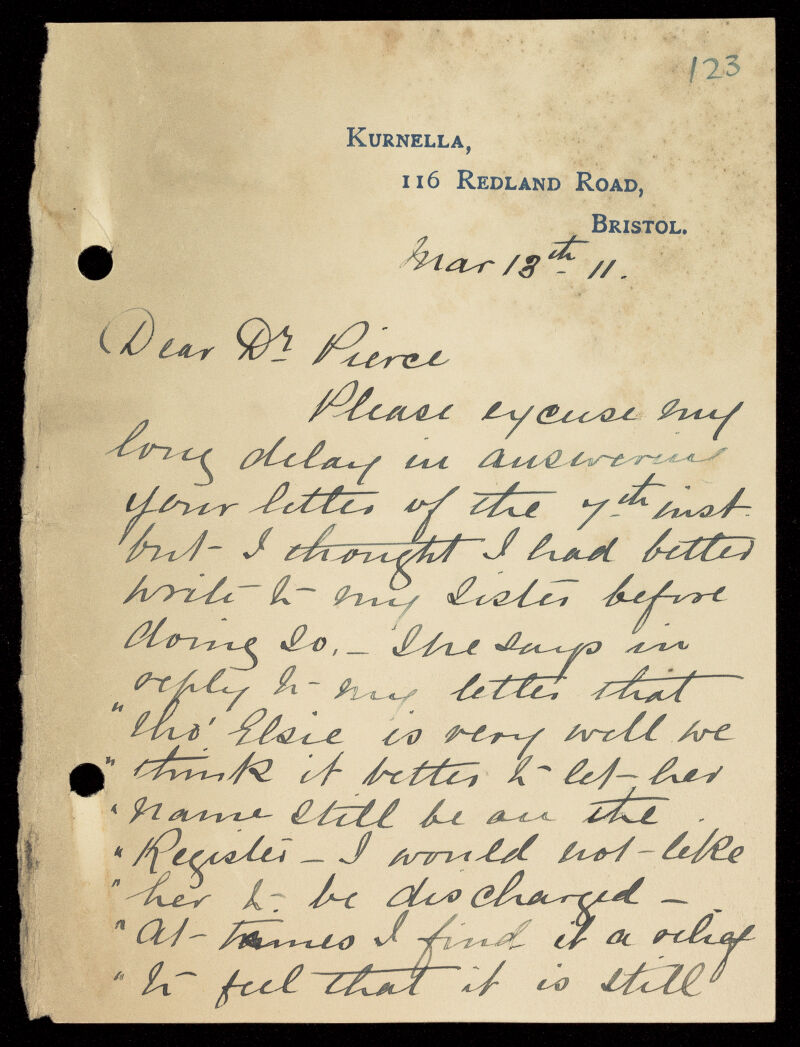 123
KURNELLA,
116 REDLAND ROAD,
BRISTOL.
Mar 13th 11.
Dear Dr Pierce
Please excuse my
long delay in answering
your letter of the 7th inst.
but - I thought I had better
write to my sister before
doing so. - She says in
reply to my letter that
"tho' Elsie is very well we
"think it better to let her
"name still be on the
"Register - I would not like
"her to be discharged -
"At times I find it a relief
"to feel that it is still